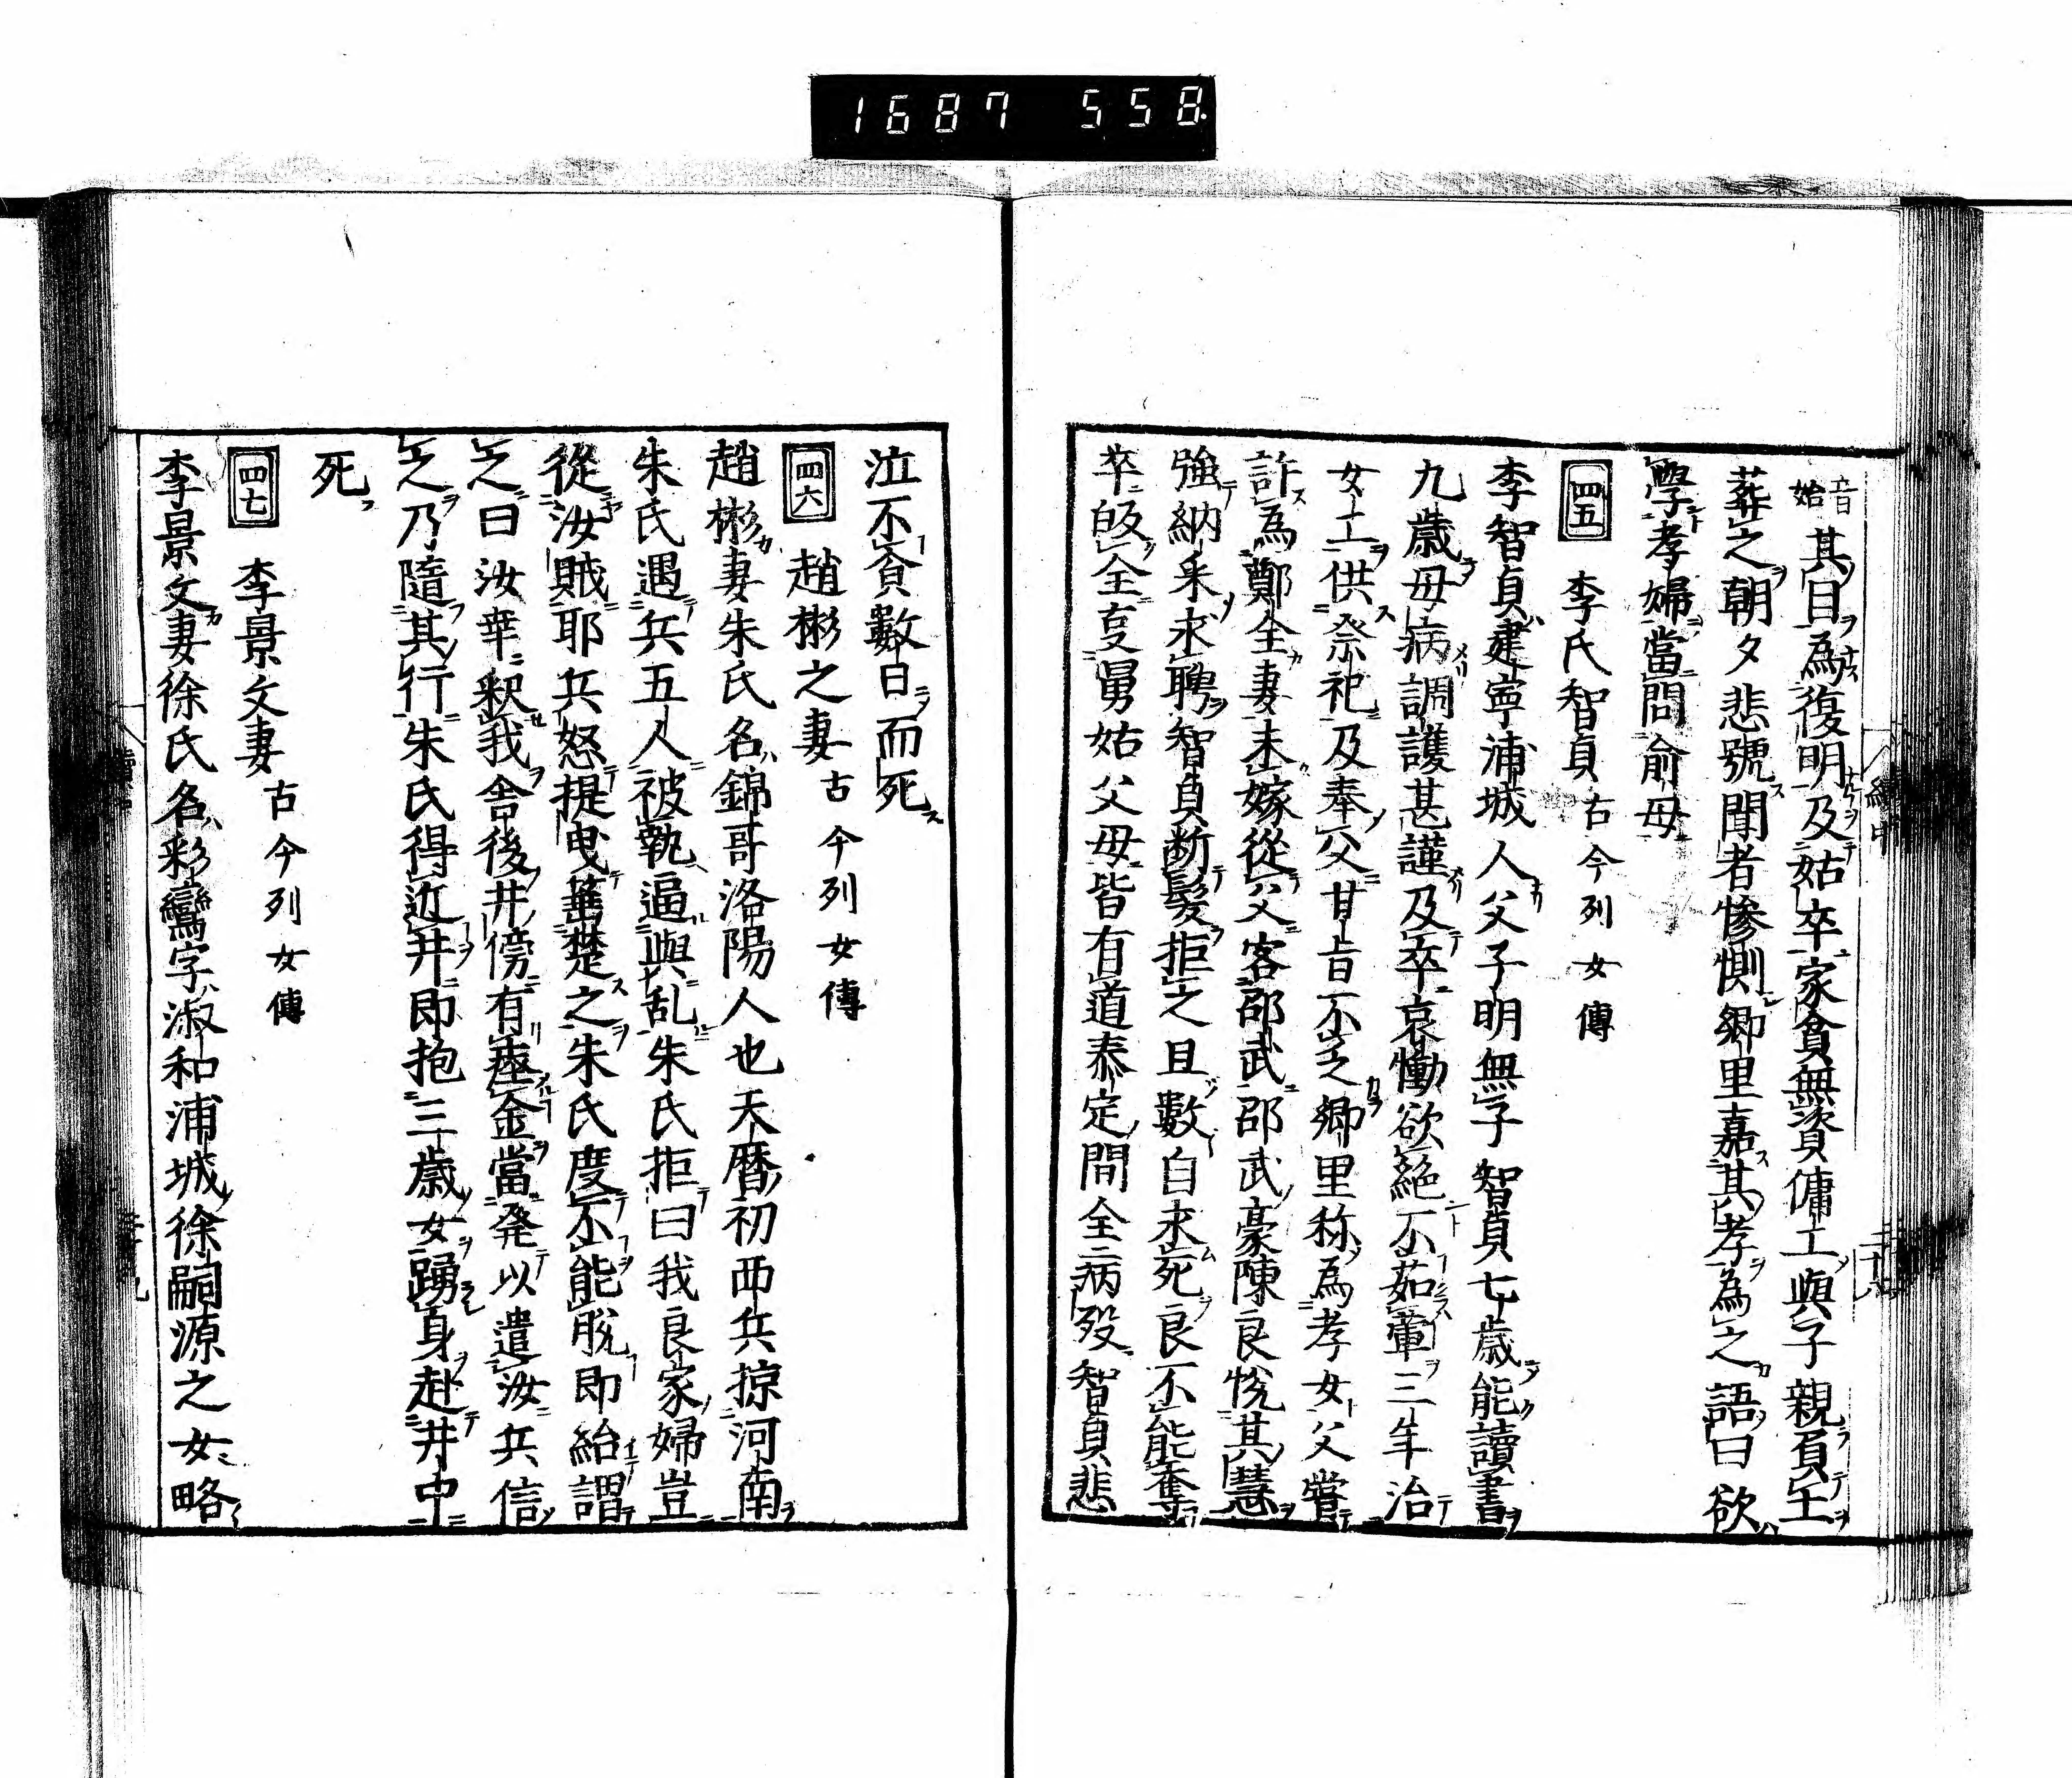 1687 558
音始其目為復明及姑卒家貧無資傭工與子親負土
葬之朝夕悲號聞者慘惻鄉里嘉其孝為之語曰欲
學孝婦當問俞母
四五 李氏智貞 古今列女傳
李智貞建寧浦城人父子明無子智貞七歲能讀書
九歲母病調護甚謹及卒哀慟欲絕不茹葷三年治
女工供祭祀及奉父甘旨不乏鄉里称為孝女父嘗
許為鄭全妻未嫁從父客邵武邵武豪陳良悅其慧
強納采求聘智貞断髮拒之且數自求死良不能奪
卒皈全事舅姑父母皆有道泰定間全病殁智貞悲
泣不食數日而死
四六 趙彬之妻 古今列女傳
趙彬妻朱氏名錦哥洛陽人也天曆初西兵掠河南
朱氏遇兵五人被執逼與乱朱氏拒曰我良家婦豈
從汝賊耶兵怒提曳箠楚之朱氏度不能脫即紿謂
之曰汝幸釈我舍後井傍有瘞金當発以遣汝兵信
之乃隨其行朱氏得近井即抱三歲女踴身赴井中
死
四七 李景文妻 古今列女傳
李景文妻徐氏名彩鸞字淑和浦城徐嗣源之女略